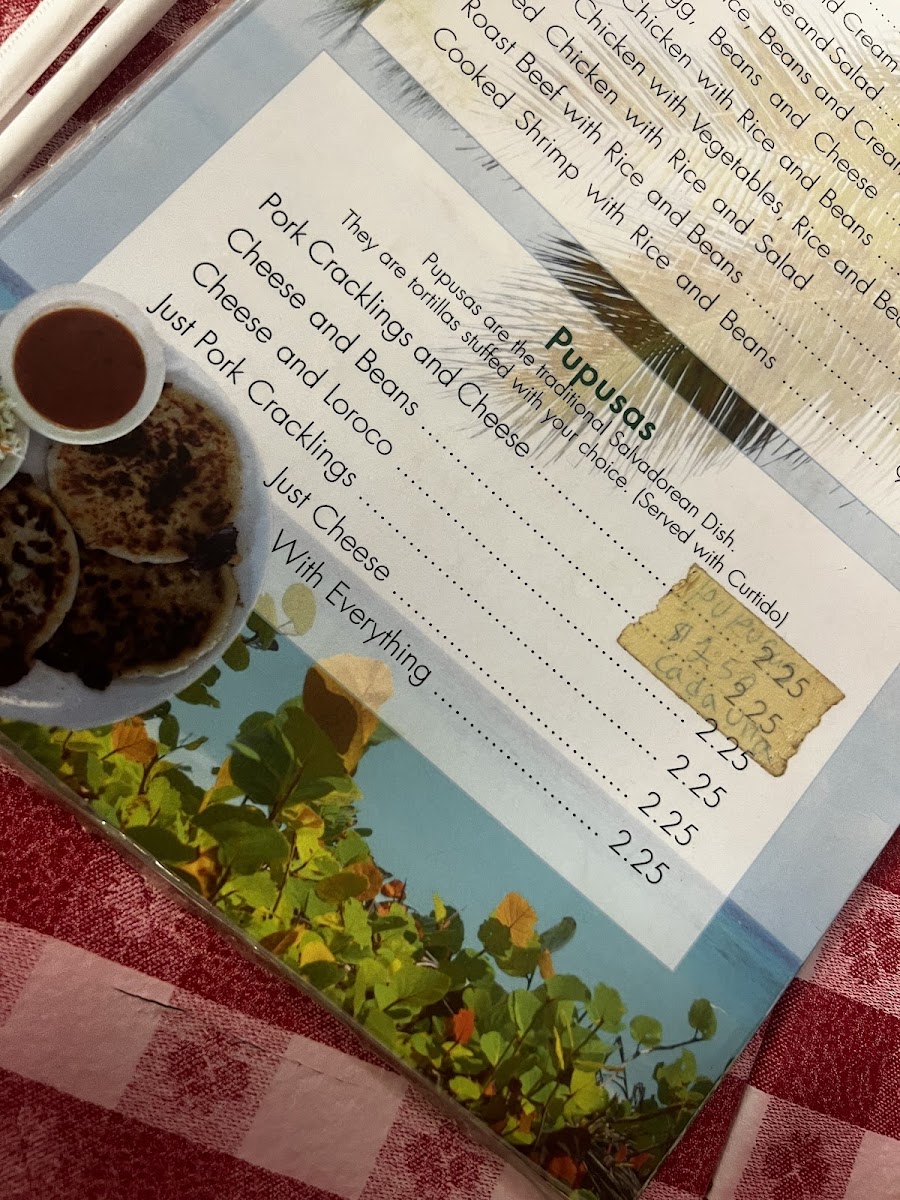 and Cream
se and Salad
ice, Beans and Cream
gg, Beans and Cheese
Chicken with Rice and Beans
Chicken with Vegetables, Rice and Bea
ed Chicken with Rice and Salad
Roast Beef with Rice and Beans
Cooked Shrimp with Rice and Beans
Pupusas
Pupusas are the traditional Salvadorean Dish.
They are tortillas stuffed with your choice. (Served with Curtido)
Pork Cracklings and Cheese 2.25
Cheese and Beans 2.25
Cheese and Loroco 2.25
Just Pork Cracklings 2.25
Just Cheese 2.25
With Everything 2.25
cada una